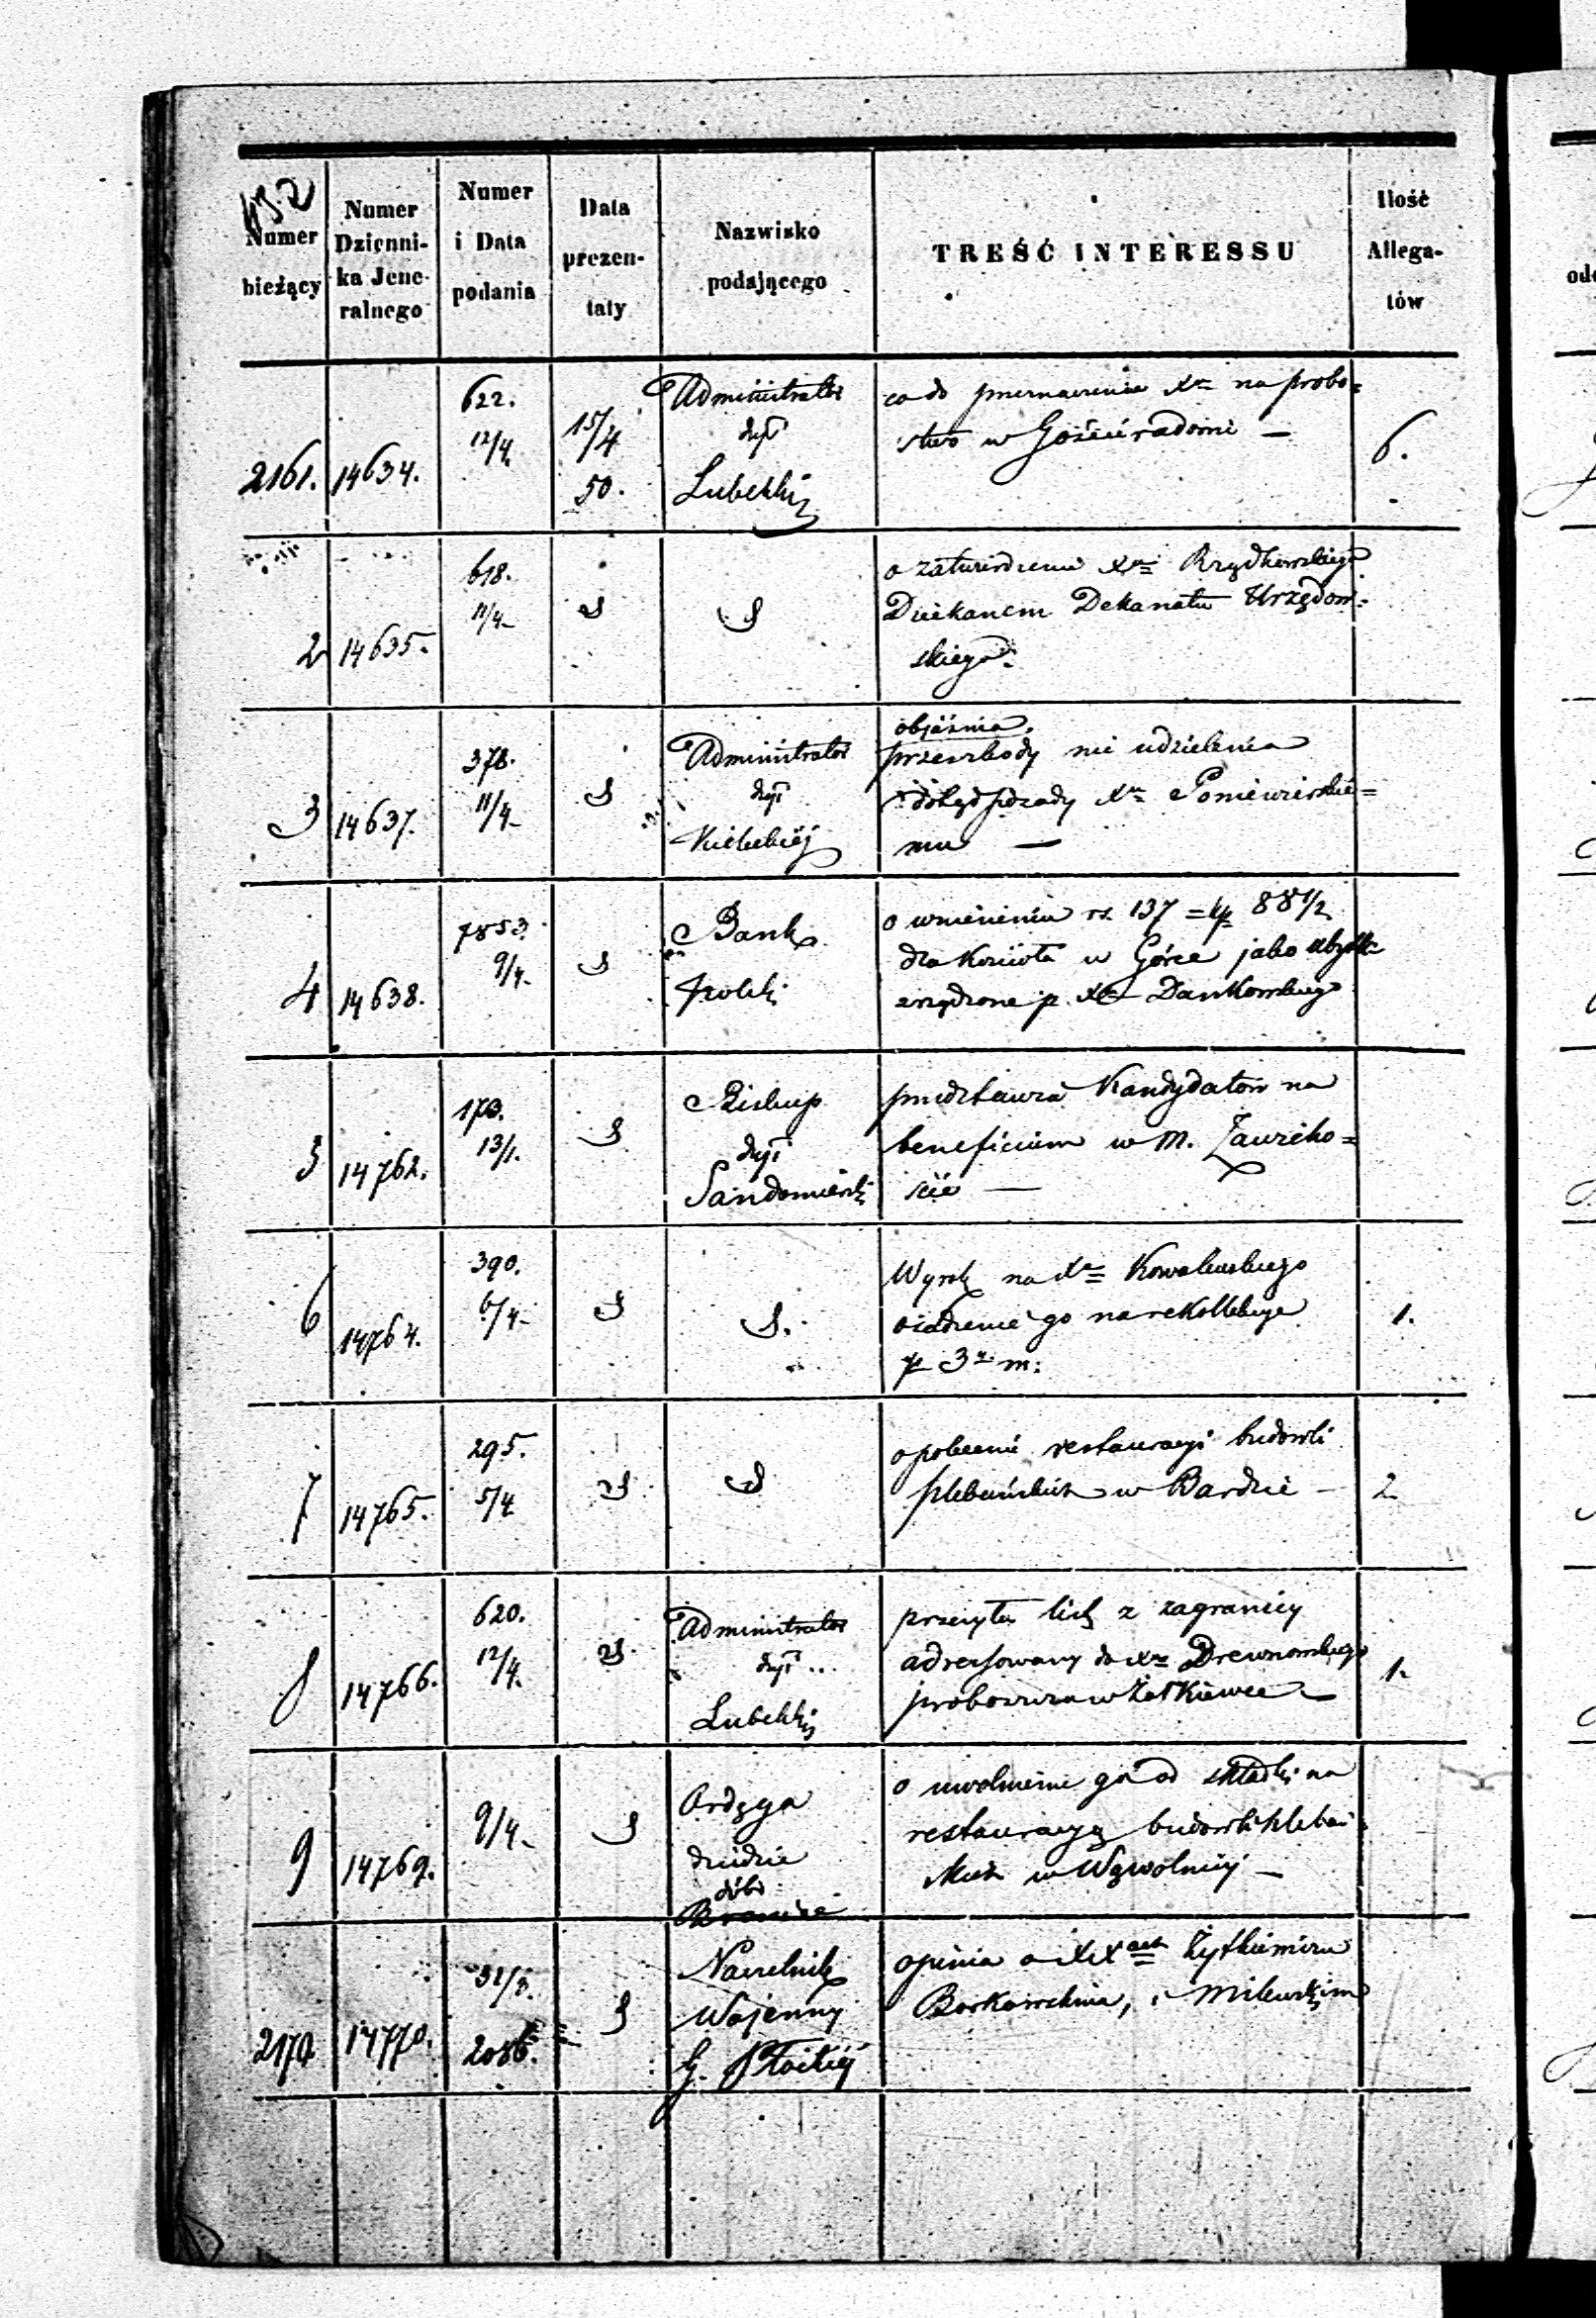 432
Numer bieżący
Numer Dzienni- ka Jene- ralnego
Numer i Data podania
Data prezen- taty
Nazwisko podającego
TREŚĆ INTERESSU
Ilość Allega- tów
2161. 14634.
622.
12/4.
15/4
50.
Administrator
dyi
Lubelski
co do przeznaczenia Xa na probo=
stwo w Gościeradowie —
6.
2 14635.
618.
11/4
o zatwierdzenie Xa Rządkowskiego
Dziekanem Dekanatu Urzędow=
skiego.
3 14637.
378.
11/4
Administrator
dyi
Kieleckiej
objaśnia
przeszkody nie udzielenia
dotąd posady Xu Poniewierskie=
mu —
4 14638.
7853.
9/4.
Bank
Polski
o wniesieniu rs. 137 = kp 88 1/2
dla Kościoła w Górce jako
p. Xa Dankowskiego
5 14762.
170.
13/1.
Biskup
dyi
Sandomierski
przedstawia Kandydatów na
beneficium w M. Zawicho=
ście —
6 14764.
390.
6/4
Wyrok na Xa Kowalewskiego
osadzenie go na rekollekcye
p 3 m:
1.
7 14765.
295.
5/4
o polecenie restauracyi budowli
plebańskich w Bardzie —
2
8 14766.
620.
12/4.
Administrator
dyi
Lubelski
przesyła list z zagranicy
adressowany do Xa Drewnowskiego
proboszcza w Żołkiewce —
1.
9 14769.
9/4
Ordęga
dziedzic
dóbr
o uwolnienie go od składki na
restauracyą budowli plebań=
skich w Wąwolnicy —
2170 14770.
31/3.
2086.
Naczelnik
Wojenny
G. Płockiej
opinia o XX Żytkiemiczu
Borkowskim, i Milewskim